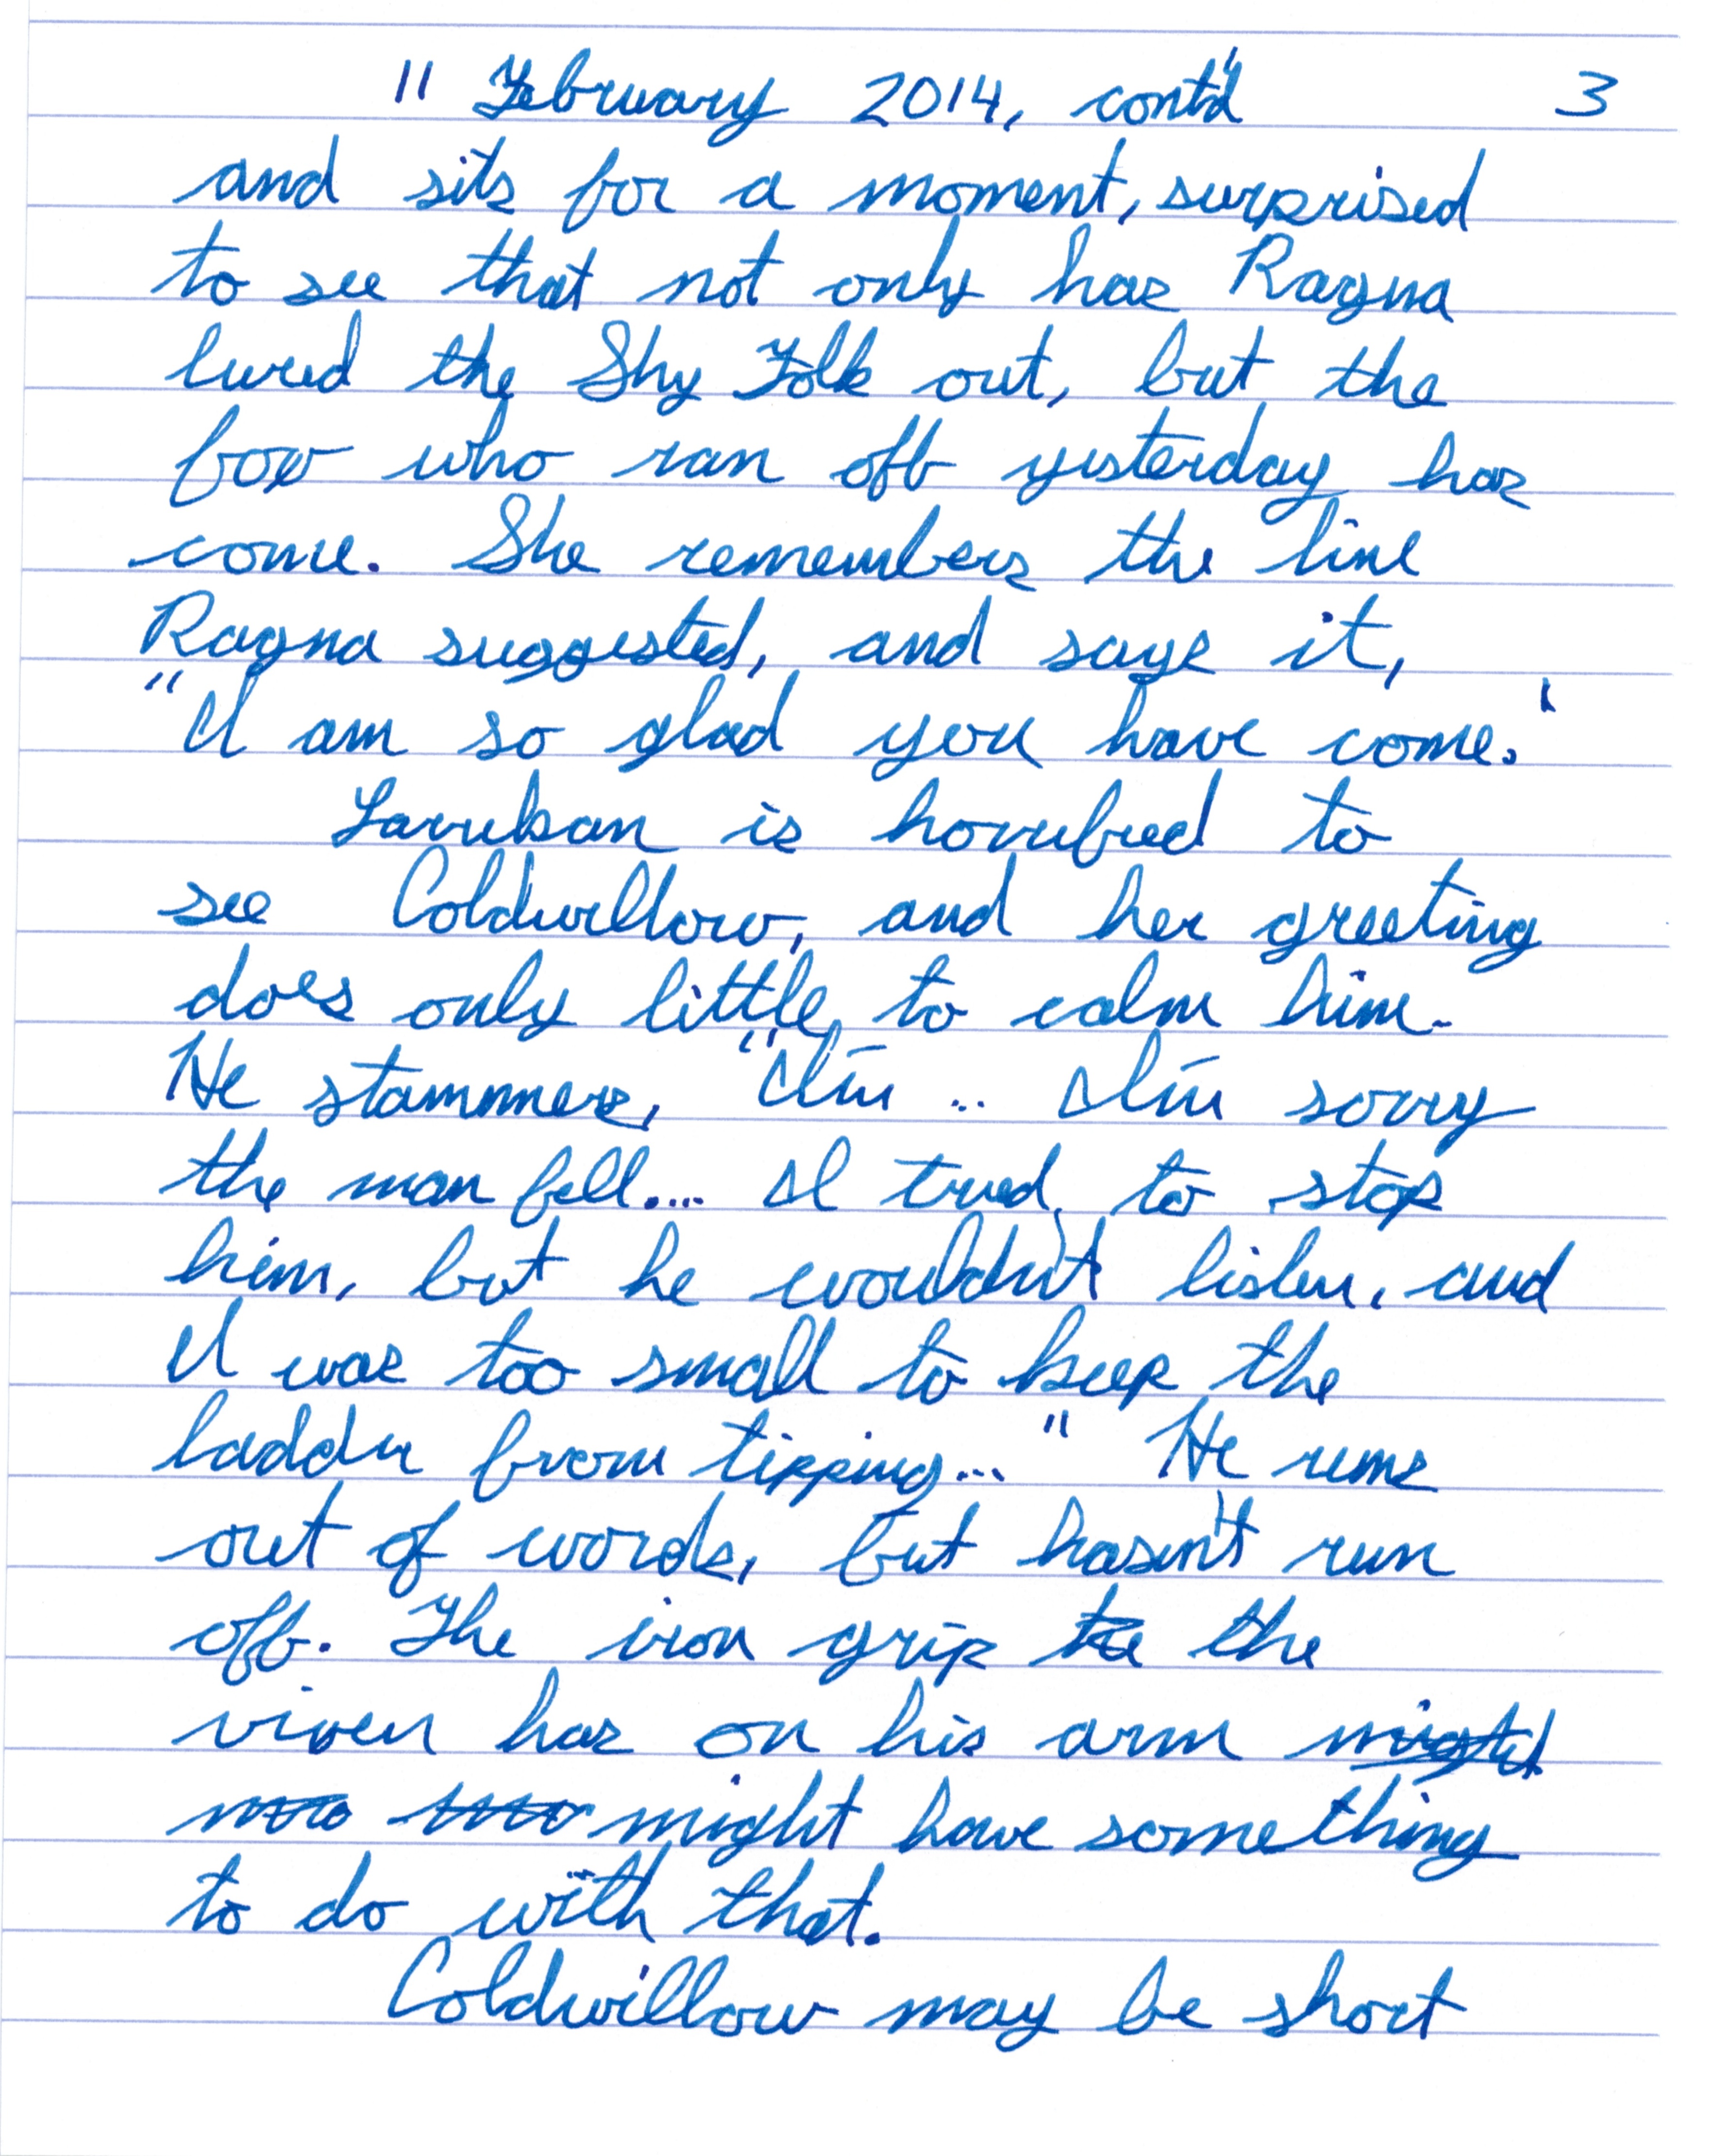 11 February 2014, cont'd 3
and sits for a moment, surprised
to see that not only has Ragna
lured the Shy Folk out, but the
fox who ran off yesterday has
come. She remembers the line
Ragna suggested, and says it,
"I am so glad you have come."
Larrikan is horrified to
see Coldwillow, and her greeting
does only little to calm him.
He stammers, "I'm .. I'm sorry
the man fell.... I tried to stop
him, but he wouldn't listen, and
I was too small to keep the
ladder from tipping..." He runs
out of words, but hasn't run
off. The iron grip the
vixen has on his arm
might have something
to do with that.
Coldwillow may be short